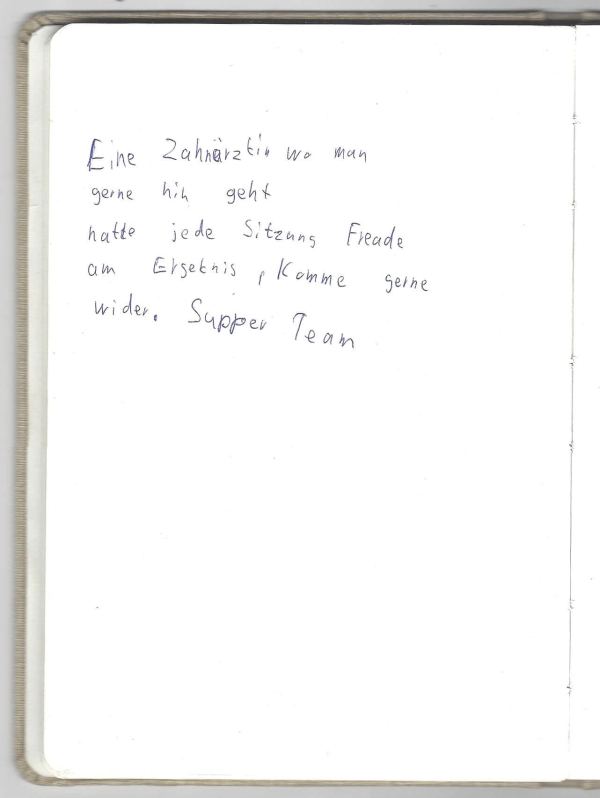 Eine Zahnärztin wo man
gerne hin geht
hatte jede Sitzung Freude
am Ergebnis, Komme gerne
wider. Supper Team